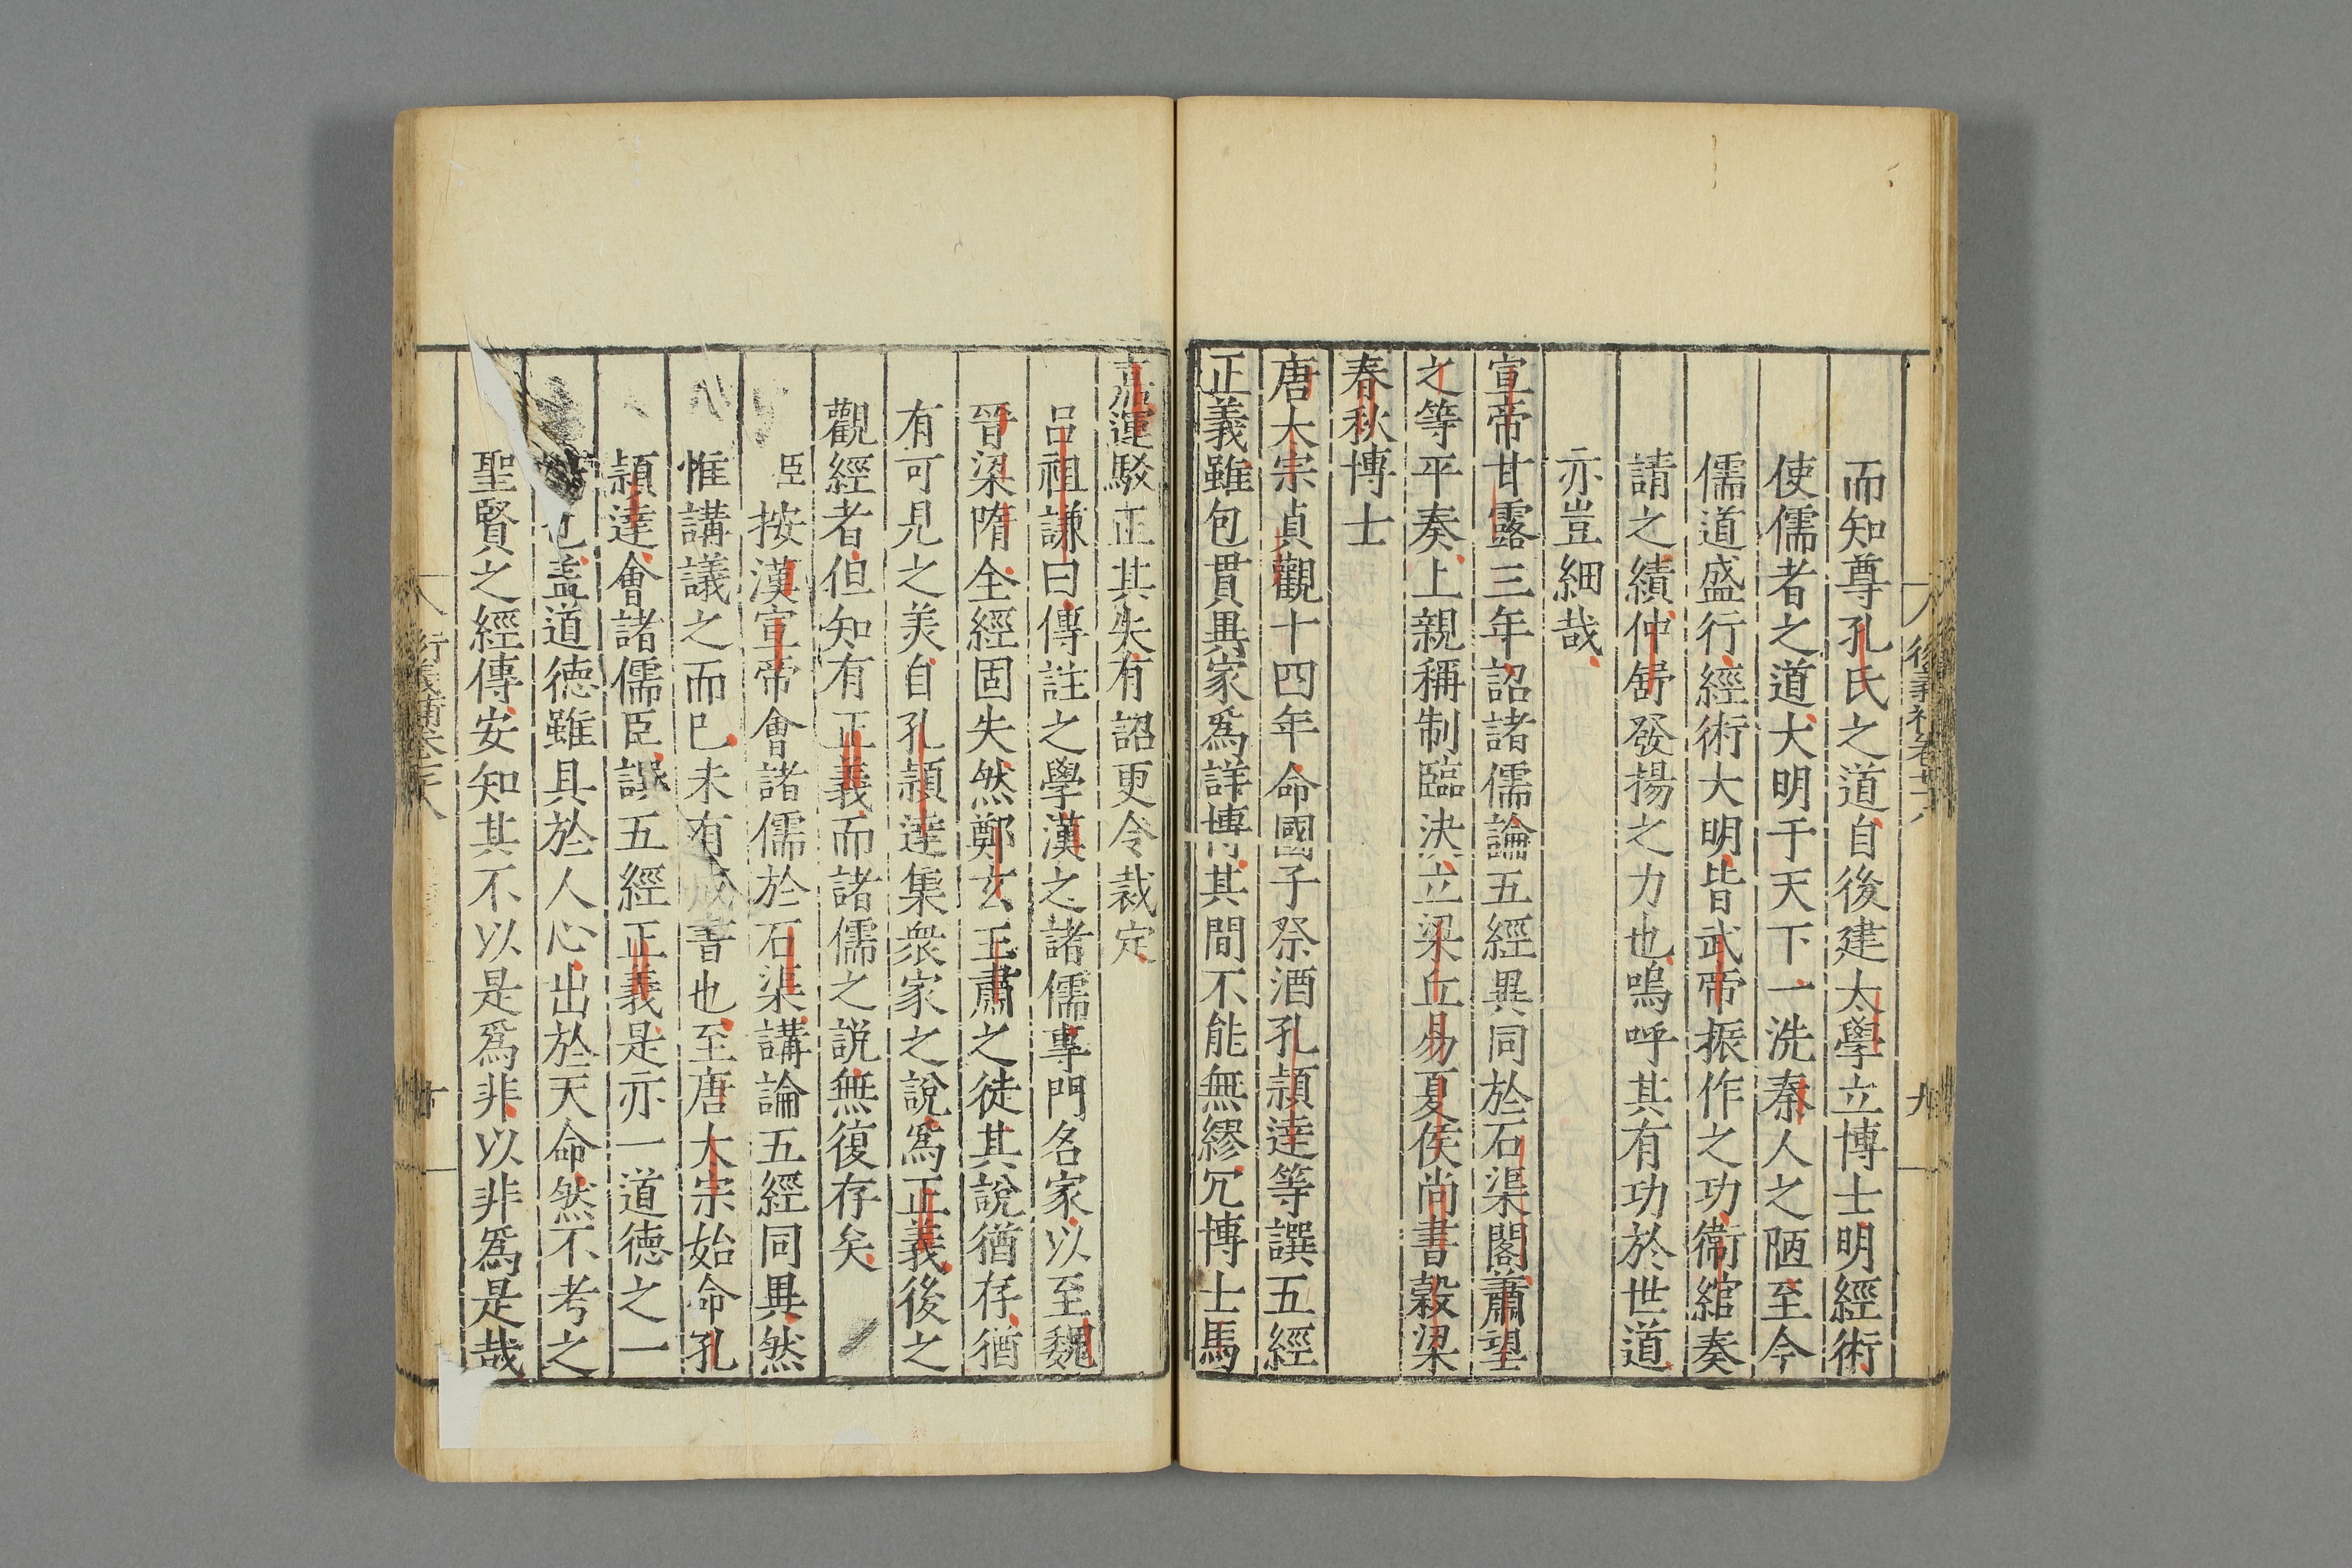 而知尊孔氏之道自後建太學立博士明經術
使儒者之道大明于天下一洗秦人之陋至今
儒道盛行經術大明皆武帝振作之功衞綰奏
請之績仲舒發揚之力也嗚呼其有功於世道
亦豈細哉
宣帝甘露三年詔諸儒論五經異同於石渠閣蕭望
之等平奏上親稱制臨決立梁丘易夏侯尚書穀梁
春秋博士
唐太宗貞觀十四年命國子祭酒孔頴達等譔五經
正義雖包貫異家爲詳博其間不能無繆冗博士馬
嘉運駁正其失有詔更令裁定
呂祖謙曰傳註之學漢之諸儒專門名家以至魏
晉梁隋全經固失然鄭玄王肅之徒其說猶存猶
有可見之美自孔頴達集衆家之說爲正義後之
觀經者但知有正義而諸儒之説無復存矣
臣按漢宣帝會諸儒於石渠講論五經同異然
惟講議之而已未有成書也至唐太宗始命孔
頴達會諸儒臣譔五經正義是亦一道德之一
也盖道德雖具於人心出於天命然不考之
聖賢之經傳安知其不以是爲非以非爲是哉